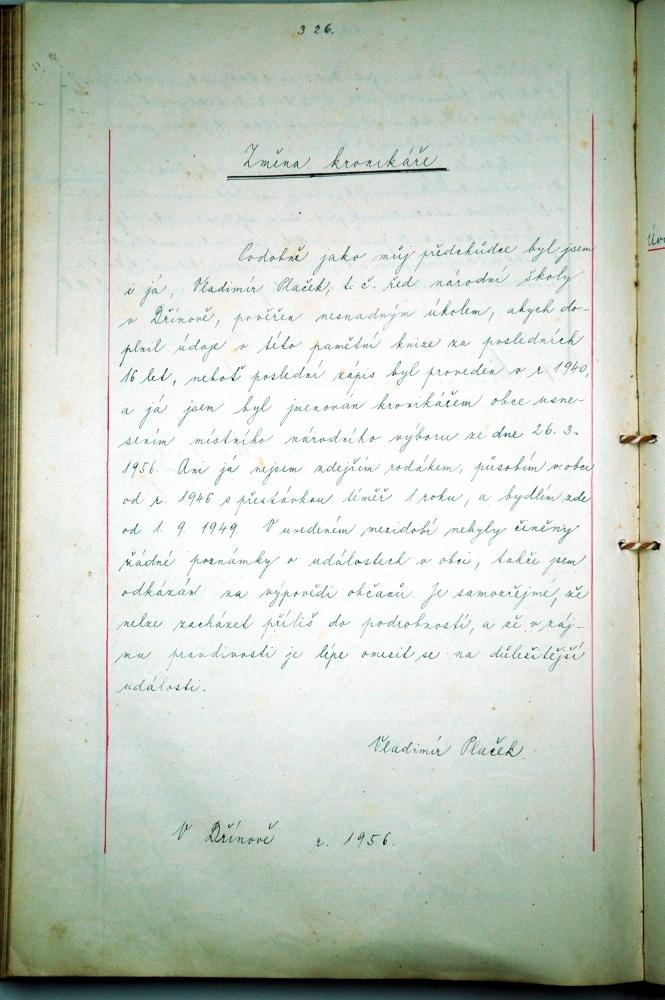 326.
Změna kronikáře
Podobně jako můj předchůdce byl jsem
i já, Vladimír Plaček, t. č. řed národní školy
v Dřínově, pověřen nesnadným úkolem, abych do-
plnil údaje v této pamětní knize za posledních
16 let, neboť poslední zápis byl proveden v r. 1940,
a já jsem byl jmenován kronikářem obce usne-
sením místního národního výboru ze dne 26. 3.
1956. Ani já nejsem zdejším rodákem, působím v obci
od r. 1946 s přestávkou téměř 1 roku, a bydlím zde
od 1. 9. 1949. V uvedeném mezidobí nebyly činěny
řádné poznámky o událostech v obci, takže jsem
odkázán na výpovědi občanů. Je samozřejmé, že
nelze zacházet příliš do podrobností, a že v záj-
mu pravdivosti je lépe omezil se na důležitější
události.
Vladimír Plaček.
V Dřínově r. 1956.
Úvo